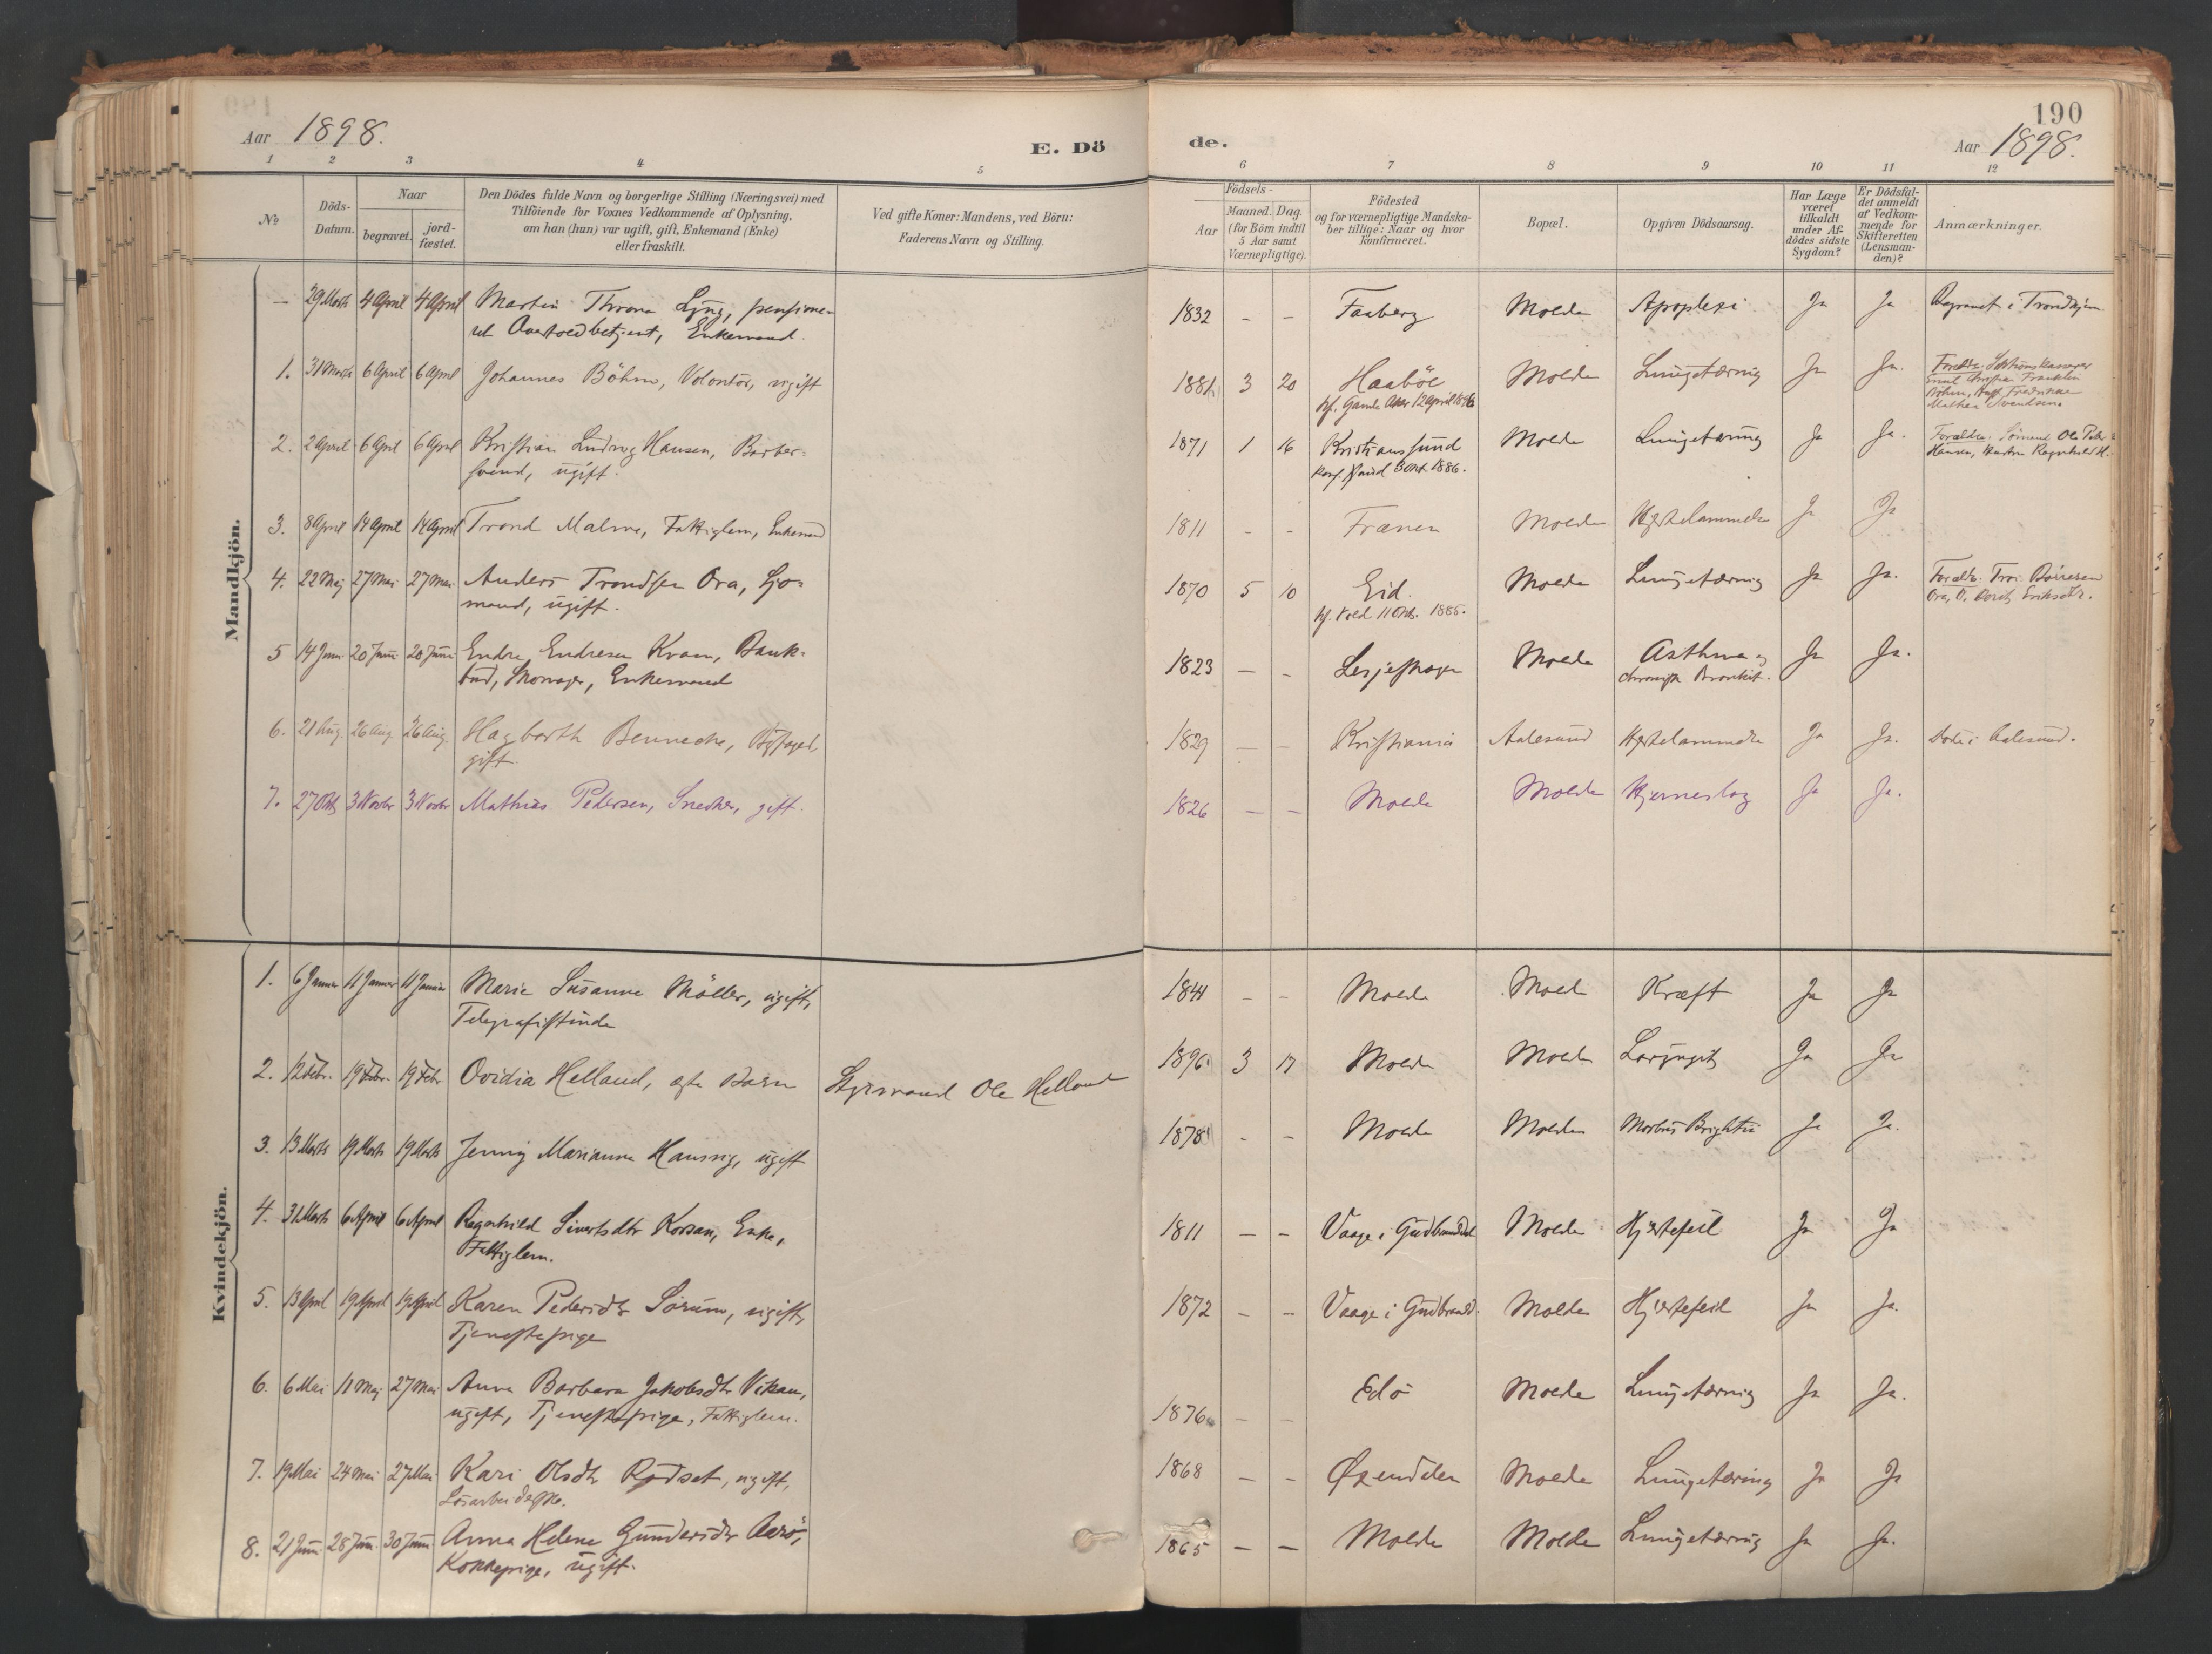 190
Aar 1898.
E. Dö
de.
Aar 1898.
1 2 3 4 5 6 7 8 9 10 11 12
No
Döds-
Datum.
Naar
begravet.
jord-
fæstet.
Den Dödes fulde Navn og borgerlige Stilling (Næringsvei) med
Tilföiende for Voxnes Vedkommende af Oplysning,
om han (hun) var ugift, gift, Enkemand (Enke)
eller fraskilt.
Ved gifte Koner: Mandens, ved Börn:
Faderens Navn og Stilling.
Födsels-
Aar
Maaned. Dag.
(for Börn indtil
5 Aar samt
Værnepligtige).
Födested
og for værnepligtige Mandska-
ber tillige: Naar og hvor
konfirmeret.
Bopæl.
Opgiven Dödsaarsag.
Har Læge
været
tilkaldt
under Af-
dödes sidste
Sygdom?
Er Dödsfal-
det anmeldt
af Vedkom-
mende for
Skifteretten
(Lensman-
den)?
Anmærkninger.
Mandkjön.
— 29 Marts 4 April 4 April Martin Throne Lyng, pensione-
ret Overtoldbetjent, Enkemand. 1832 — — Faaberg Molde Apoplexi Ja Ja Begravet i Trondhjem
1. 31 Marts 6 April 6 April Johannes Böhm, Volontör, ugift 1881 3 20 Haaböl Molde Lungetæring Ja Ja.
kf. Gamle Aker 12 April 1896
Forældre:
Emil Christian Franklin
Böhm, Fredrikke
Mathea Svendsen.
2. 2 April 6 April 6 April Kristian Ludvig Hansen, Barber-
svend, ugift. 1871 1 16 Kristianssund Molde Lungetæring Ja Ja.
3 Okt. 1886.
Forældre: Ole Peder
Hansen, Hustru Ragnhild H.
3. 8 April 14 April 14 April Trond Malme, Fattiglem, Enkemand 1811 - - Frænen Molde Hjertelammelse Ja Ja
4. 22 Maj 27 Mai 27 Mai Anders Trondsen Ora, Sjö-
mand, ugift. 1870 5 10 Eid. Molde Lungetæring Ja Ja.
11 Okt. 1885.
Forældre:
Ora,
5 14 Juni 20 Juni 20 Juni Endre Endresen Kvam, Bank-
bud, Skomager, Enkemand 1823 — - Lesjeskogn Molde Asthma og
chronisk Bronkit. Ja Ja.
6. 21 Aug. 26 Aug. 26 Aug. Hagbarth Bennecke, Byfoged,
gift. 1829 — — Kristiania Aalesund Hjertelammelse Ja Ja. Döde i Aalesund.
7. 27 Okt 3 Novbr 3 Novbr Mathias Pedersen, Snedker, gift. 1826 — — Molde Molde Hjerneslag Ja Ja.
Kvindekjön.
1. 6 Januar 11 Januar 11 Januar Marie Susanne Möller, ugift,
Telegrafistinde 1844 - - Molde Molde Kræft Ja Ja
2. 12 Febr. 19 Febr. 19 Febr Ovidia Helland, ægte Barn Styrmand Ole Helland 1896 3 17 Molde Molde Laryngit Ja Ja
3. 13 Marts 19 Marts 19 Marts Jenny Marianne Haussig, ugift 1878 - - Molde Molde Morbus Brightii Ja Ja.
4. 31 Marts 6 April 6 April Ragnhild Sivertsdtr Korsan, Enke,
Fattiglem. 1811 — - Vaage i Gudbrandsd Molde Hjertefeil Ja Ja
5. 13 April 19 April 19 April Karen Pedersdtr Sörum, ugift,
Tjenestepige 1872 - - Vaage i Gudbrandsd. Molde Hjertefeil Ja Ja.
6. 6 Mai 11 Maj 27 Mai Anna Barbara Jakobsdtr Vikan,
ugift, Tjenestepige, Fattiglem. 1876 - - Edö Molde Lungetæring Ja Ja.
7. 19 Mai 24 Mai 27 Mai Kari Olsdtr Rødset, ugift,
Lösarbeiderske. 1868 - - Øxendalen Molde Lungetæring Ja Ja
8. 21 Juni 28 Juni 30 Juni Anna Helene Gundersdtr Aarö,
Kokkepige, ugift. 1865 — — Molde Molde Lungetæring Ja Ja.